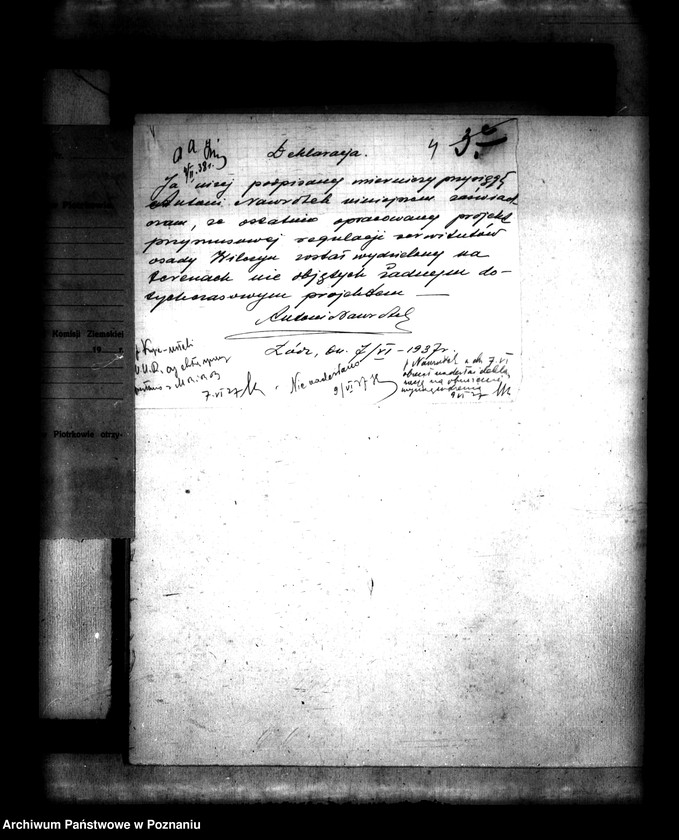 a a
4/II.38r.
4 3
Deklaracja.
Ja niżej podpisany mierniczy przysięgły
Antoni Nawrotek niniejszem zaświad
czam, że ostatnio opracowany projekt
przymusowej regulacji serwitutów
osady Wilczyn został wydzielony na
terenach nie objętych żadnym do-
tychczasowym projektem —
Antoni Nawrotek
Łódź, dn. 7/VI – 1937r.
7.VI 37
Nie nadesłano
9/VI 37
p Nawrotek w dn. 7.VI
obiecał nadesłać dekla
rację na
9 VI 37
Komisji Ziemskiej
19 r.
Piotrkowie otrzy-
Archiwum Państwowe w Poznaniu